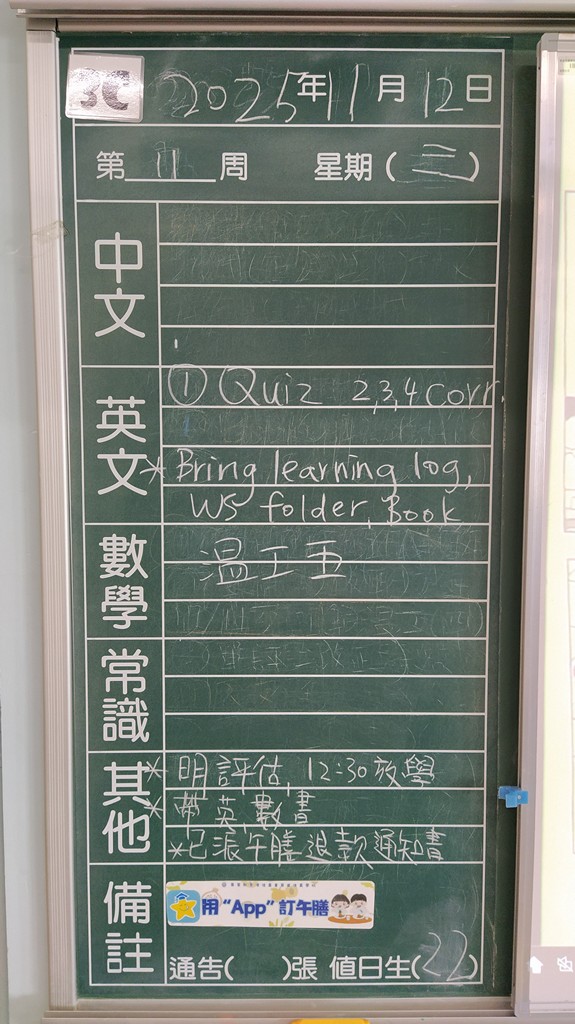 3C
2025年11月12日
第11周 星期(三)
中文
英文
① Quiz 2,3,4 corr.
* Bring learning log,
WS folder, Book
數學
溫工五
常識
其他
* 明評估, 12:30放學
* 帶英,數書
* 已派午膳退款通知書
備註
用“App”訂午膳
通告( )張 值日生(22)